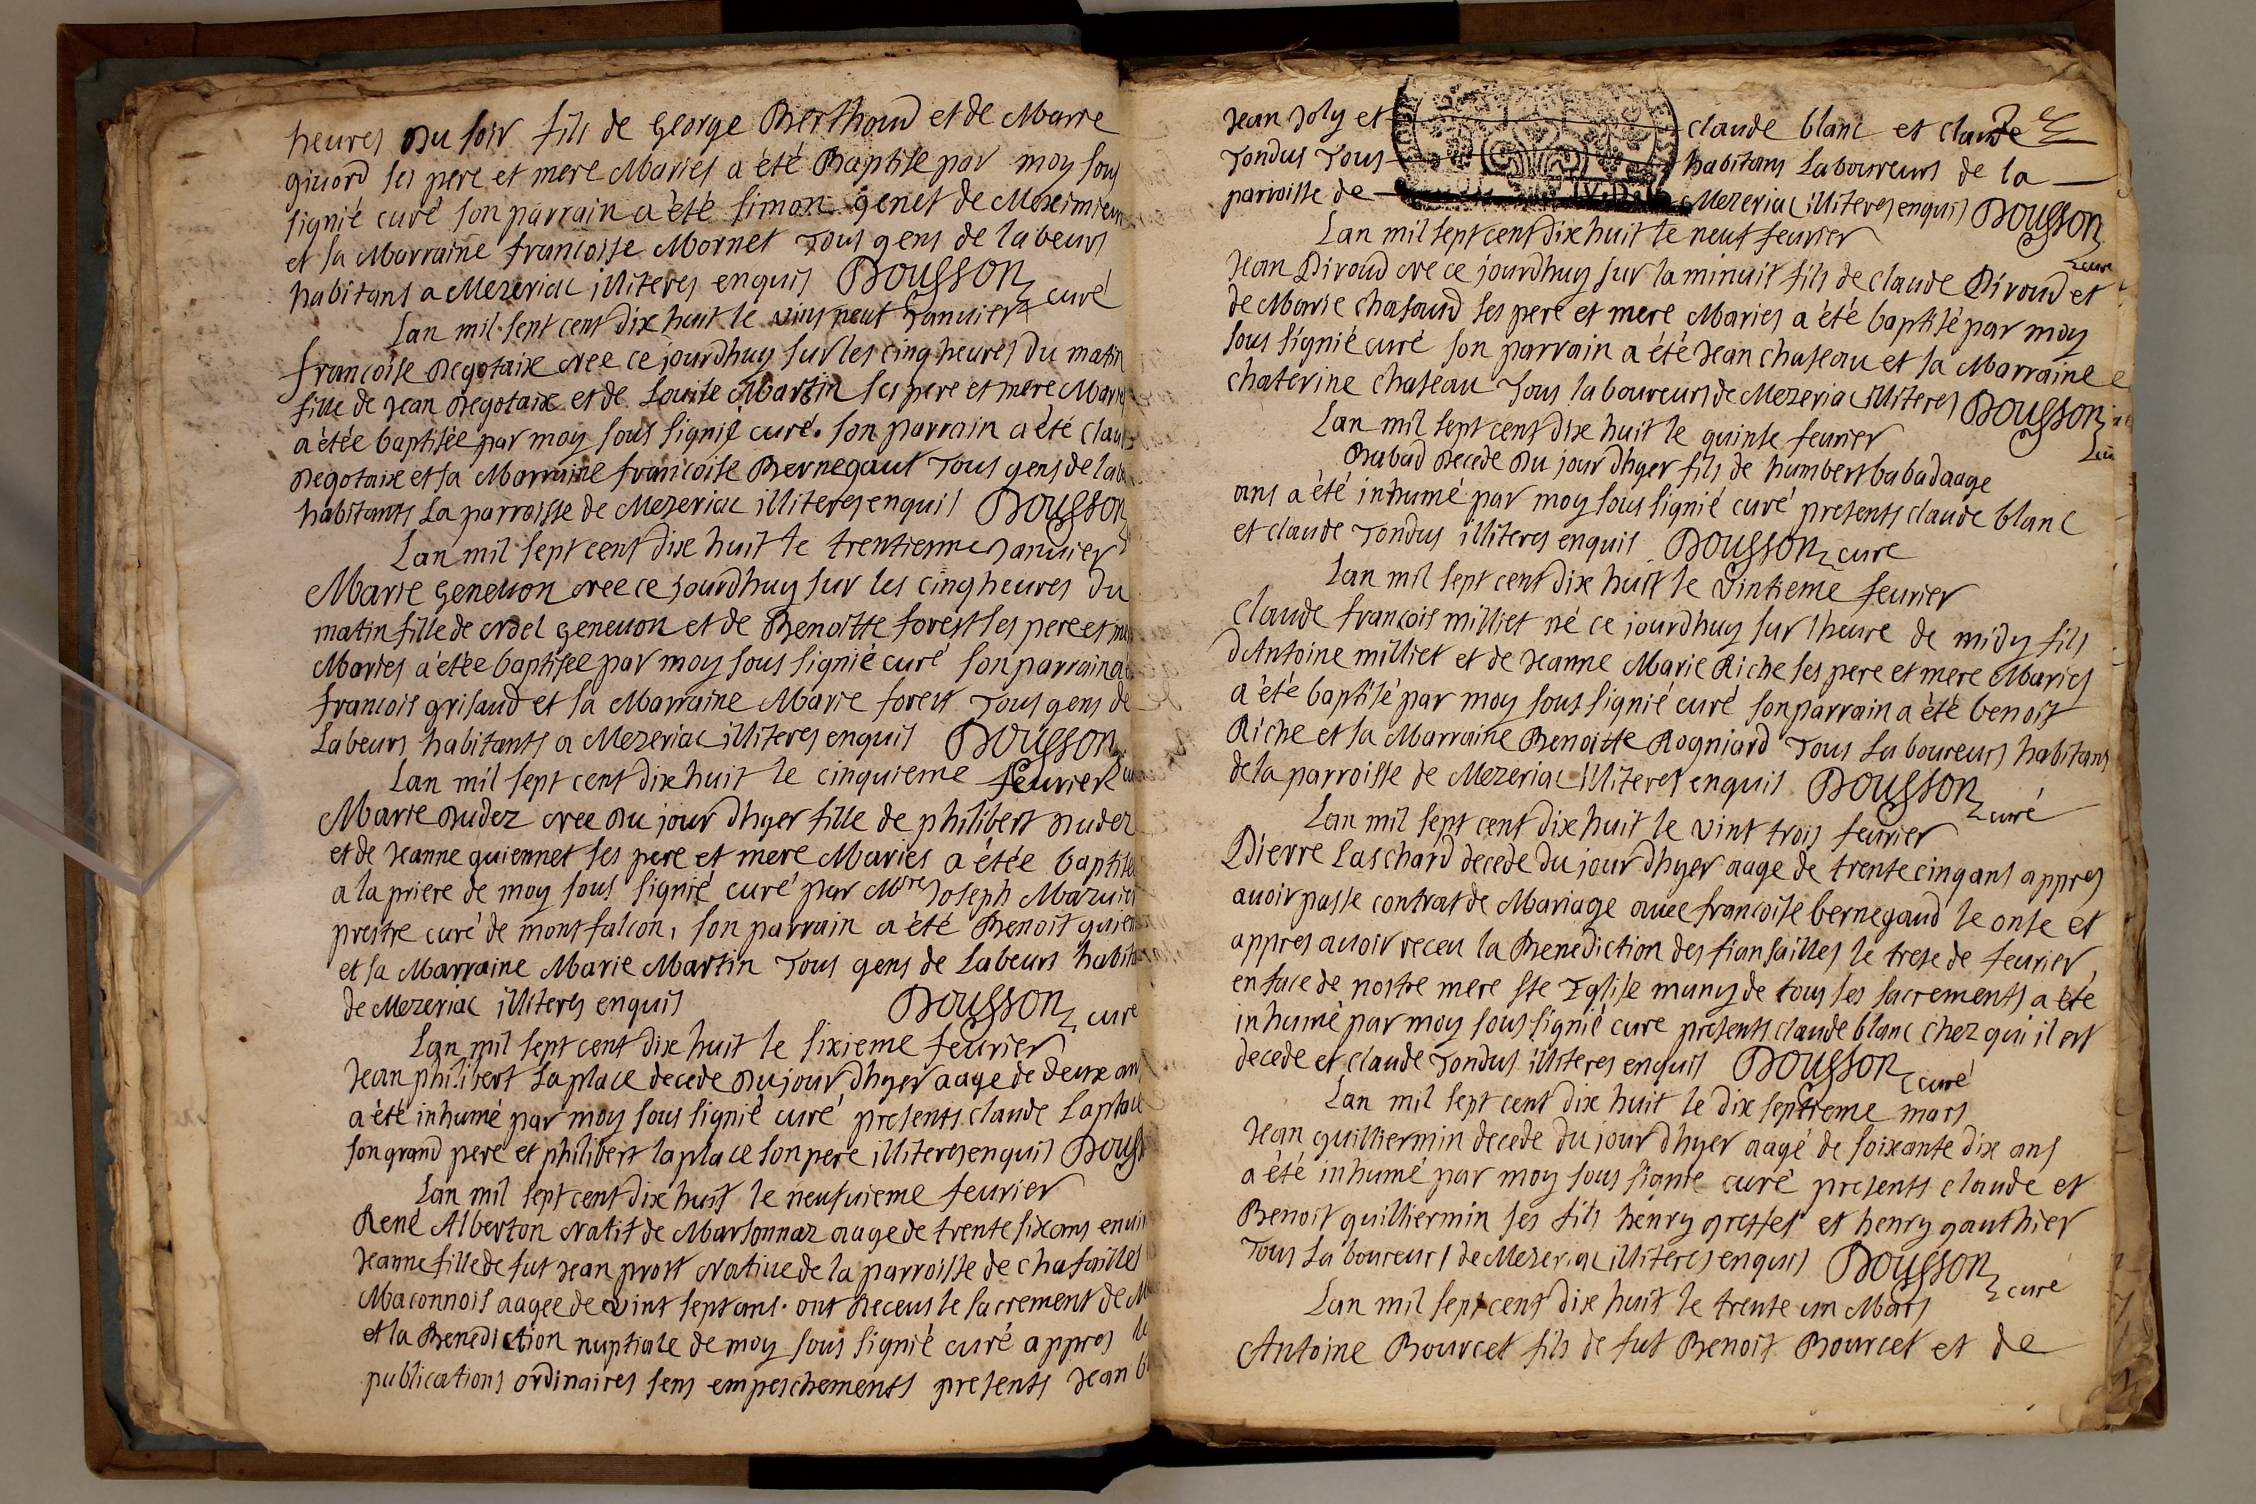 heures du soir fils de George Berthoud et de Marie
givord ses pere et mere Maries a été Baptise par moy sous
signié curé son parrain a été simon genet de Meximieu
et sa Marraine francoise Mornet Tous gens de labeurs
habitans a Mezeriac illiteres enquis Dousson curé
Lan mil sept cent dix huit le vint neuf Janvier
francoise degotaix nee ce jourdhuy sur les cinq heures du matin
fille de Jean degotaix et de Louise Martin ses pere et mere Maries
a étée baptisée par moy sous signié curé. son parrain a été Clau
degotaix et sa Marraine francoise Bernegaut Tous gens de lab
habitants La parroisse de Mezeriac illiteres enquis Dousson
Lan mil sept cent dix huit le trentienne Janvier
Marie genevon nee ce Jourdhuy sur les cinq heures du
matin fille de noel genevon et de Benoitte forest ses pere et me
Maries a étée baptisée par moy sous signié curé son parrain a
francois grisaud et sa Marraine Marie forest Tous gens de
Labeurs habitants a Mezeriac illiteres enquis Dousson
Lan mil sept cent dix huit le cinquieme fevrier cu
Marie dudez nee du jour dhyer fille de philibert dudez
et de Jeanne guiennet ses pere et mere Maries a étée baptisé
a la priere de moy sous signié curé par Mre Joseph Mazuier
prestre curé de montfalcon, son parrain a été Benoit guien
et sa Marraine Marie Martin Tous gens de Labeurs habita
de Mezeriac illiteres enquis Dousson curé
Lan mil sept cent dix huit le sixieme fevrier
Jean philibert Laplace decede du jour dhyer aage de deux an
a été inhumé par moy sous signié curé presents claude Laplace
son grand pere et philibert laplace son pere illiteres enquis Douss
Lan mil sept cent dix huit le neufvieme fevrier
René Alberton natif de Marsonnaz aage de trente six ans envir
Jeanne fille de fut Jean prost native de la parroisse de chafailles
Maconnois aagee de vint sept ans. ont Receus le sacrement de M
et la Benediction nuptiale de moy sous signié curé appres le
publications ordinaires sens empeschements presents Jean b
Jean Joly et claude blanc et claude
Tondus Tous habitans Laboureurs de la
parroisse de Mezeriac illiteres enquis Dousson
Lan mil sept cent dix huit le neuf fevrier curé
Jean Piroud ne ce jourdhuy sur la minuit fils de claude Piroud et
de Marie chasaud ses pere et mere Maries a été baptisé par moy
sous signié curé son parrain a été Jean chaseau et sa Marraine
chaterine chaseau Tous laboureurs de Mezeriac illiteres Dousson
Lan mil sept cent dix huit le quinse fevrier
Babad decede du jour dhyer fils de humbert babad aage
ans a été inhumé par moy sous signié curé presents claude blanc
et claude Tondus illiteres enquis Dousson curé
Lan mil sept cent dix huit le vintieme fevrier
Claude francois milliet né ce jourdhuy sur l'heure de midy fils
dAntoine milliet et de Jeanne Marie Riche ses pere et mere Maries
a été baptisé par moy sous signié curé son parrain a été benoit
Riche et sa Marraine Benoitte Rogniard Tous Laboureurs habitans
de la parroisse de Mezeriac illiteres enquis Dousson curé
Lan mil sept cent dix huit le vint trois fevrier
Pierre Laschard decede du jour dhyer aage de trente cinq ans appres
avoir passe contrat de Mariage avec francoise bernegaud le onse et
appres avoir receu la Benediction des fiansailles le trese de fevrier
en face de nostre mere ste Eglise muny de tous ses sacrements a été
inhumé par moy sous signié curé presents claude blanc chez qui il est
decede et claude Tondus illiteres enquis Dousson curé
Lan mil sept cent dix huit le dix septieme mars
Jean guilliermin decede du jour dhyer aagé de soixante dix ans
a été inhumé par moy sous signié curé presents claude et
Benoit guilliermin ses fils henry grosset et henry gauthier
Tous Laboureurs de Mezeriac illiteres enquis Dousson curé
Lan mil sept cent dix huit le trente un Mars
Antoine Bourcet fils de fut Benoit Bourcet et de